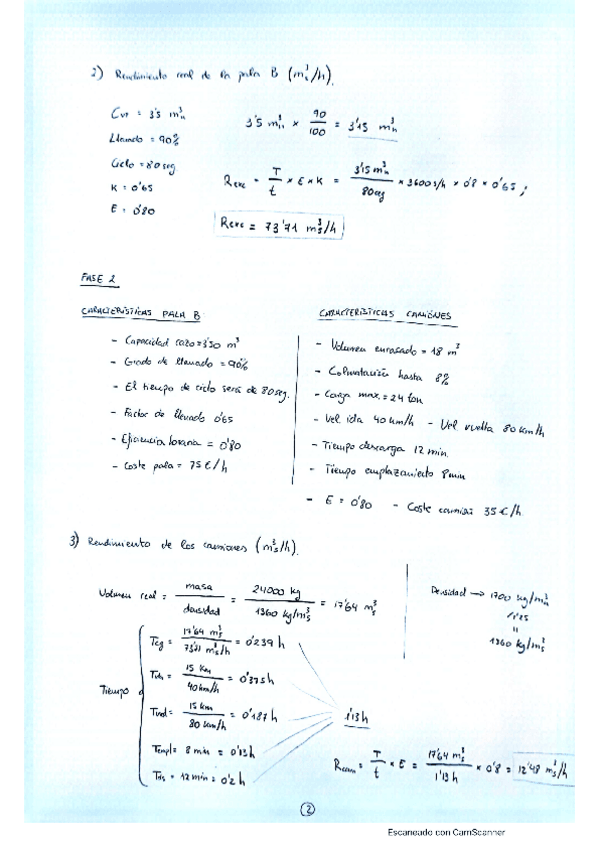 2) Rendimiento real de la pala B (m³s/h).
Cur = 3'5 m³n
Llenado = 90%
Ciclo = 80 seg
K = 0'65
E = 0'80
3'5 m³n × 90/100 = 3'15 m³n
Rexc = T/t × E × K = 3'15 m³n/80seg × 3600 s/h × 0'8 × 0'65 ;
Rexc = 73'71 m³s/h
FASE 2
CARACTERÍSTICAS PALA B
- Capacidad cazo = 3'50 m³
- Grado de llenado = 90%
- El tiempo de ciclo será de 80 seg.
- Factor de llenado 0'65
- Eficiencia horaria = 0'80
- Coste pala = 75 €/h
CARACTERÍSTICAS CAMIONES
- Volumen enrasado = 18 m³
- Colmatación hasta 8%
- Carga max. = 24 ton
- Vel ida 40 km/h - Vel vuelta 80 km/h
- Tiempo descarga 12 min.
- Tiempo emplazamiento 8 min
- E = 0'80 - Coste camión 35 €/h
3) Rendimiento de los camiones (m³s/h).
Volumen real = masa/densidad = 24000 kg/1360 kg/m³s = 17'64 m³s
Densidad → 1700 kg/m³n
/1'25
=
1360 kg/m³s
Tiempo
Tcg = 17'64 m³s/73'71 m³s/h = 0'239 h
= 15 Km/40 km/h = 0'375 h
= 15 km/80 km/h = 0'187 h
Templ = 8 min = 0'13 h
= 12 min = 0'2 h
1'13 h
Rcam = T/t × E = 17'64 m³s/1'13 h × 0'8 = 12'48 m³s/h
2
Escaneado con CamScanner